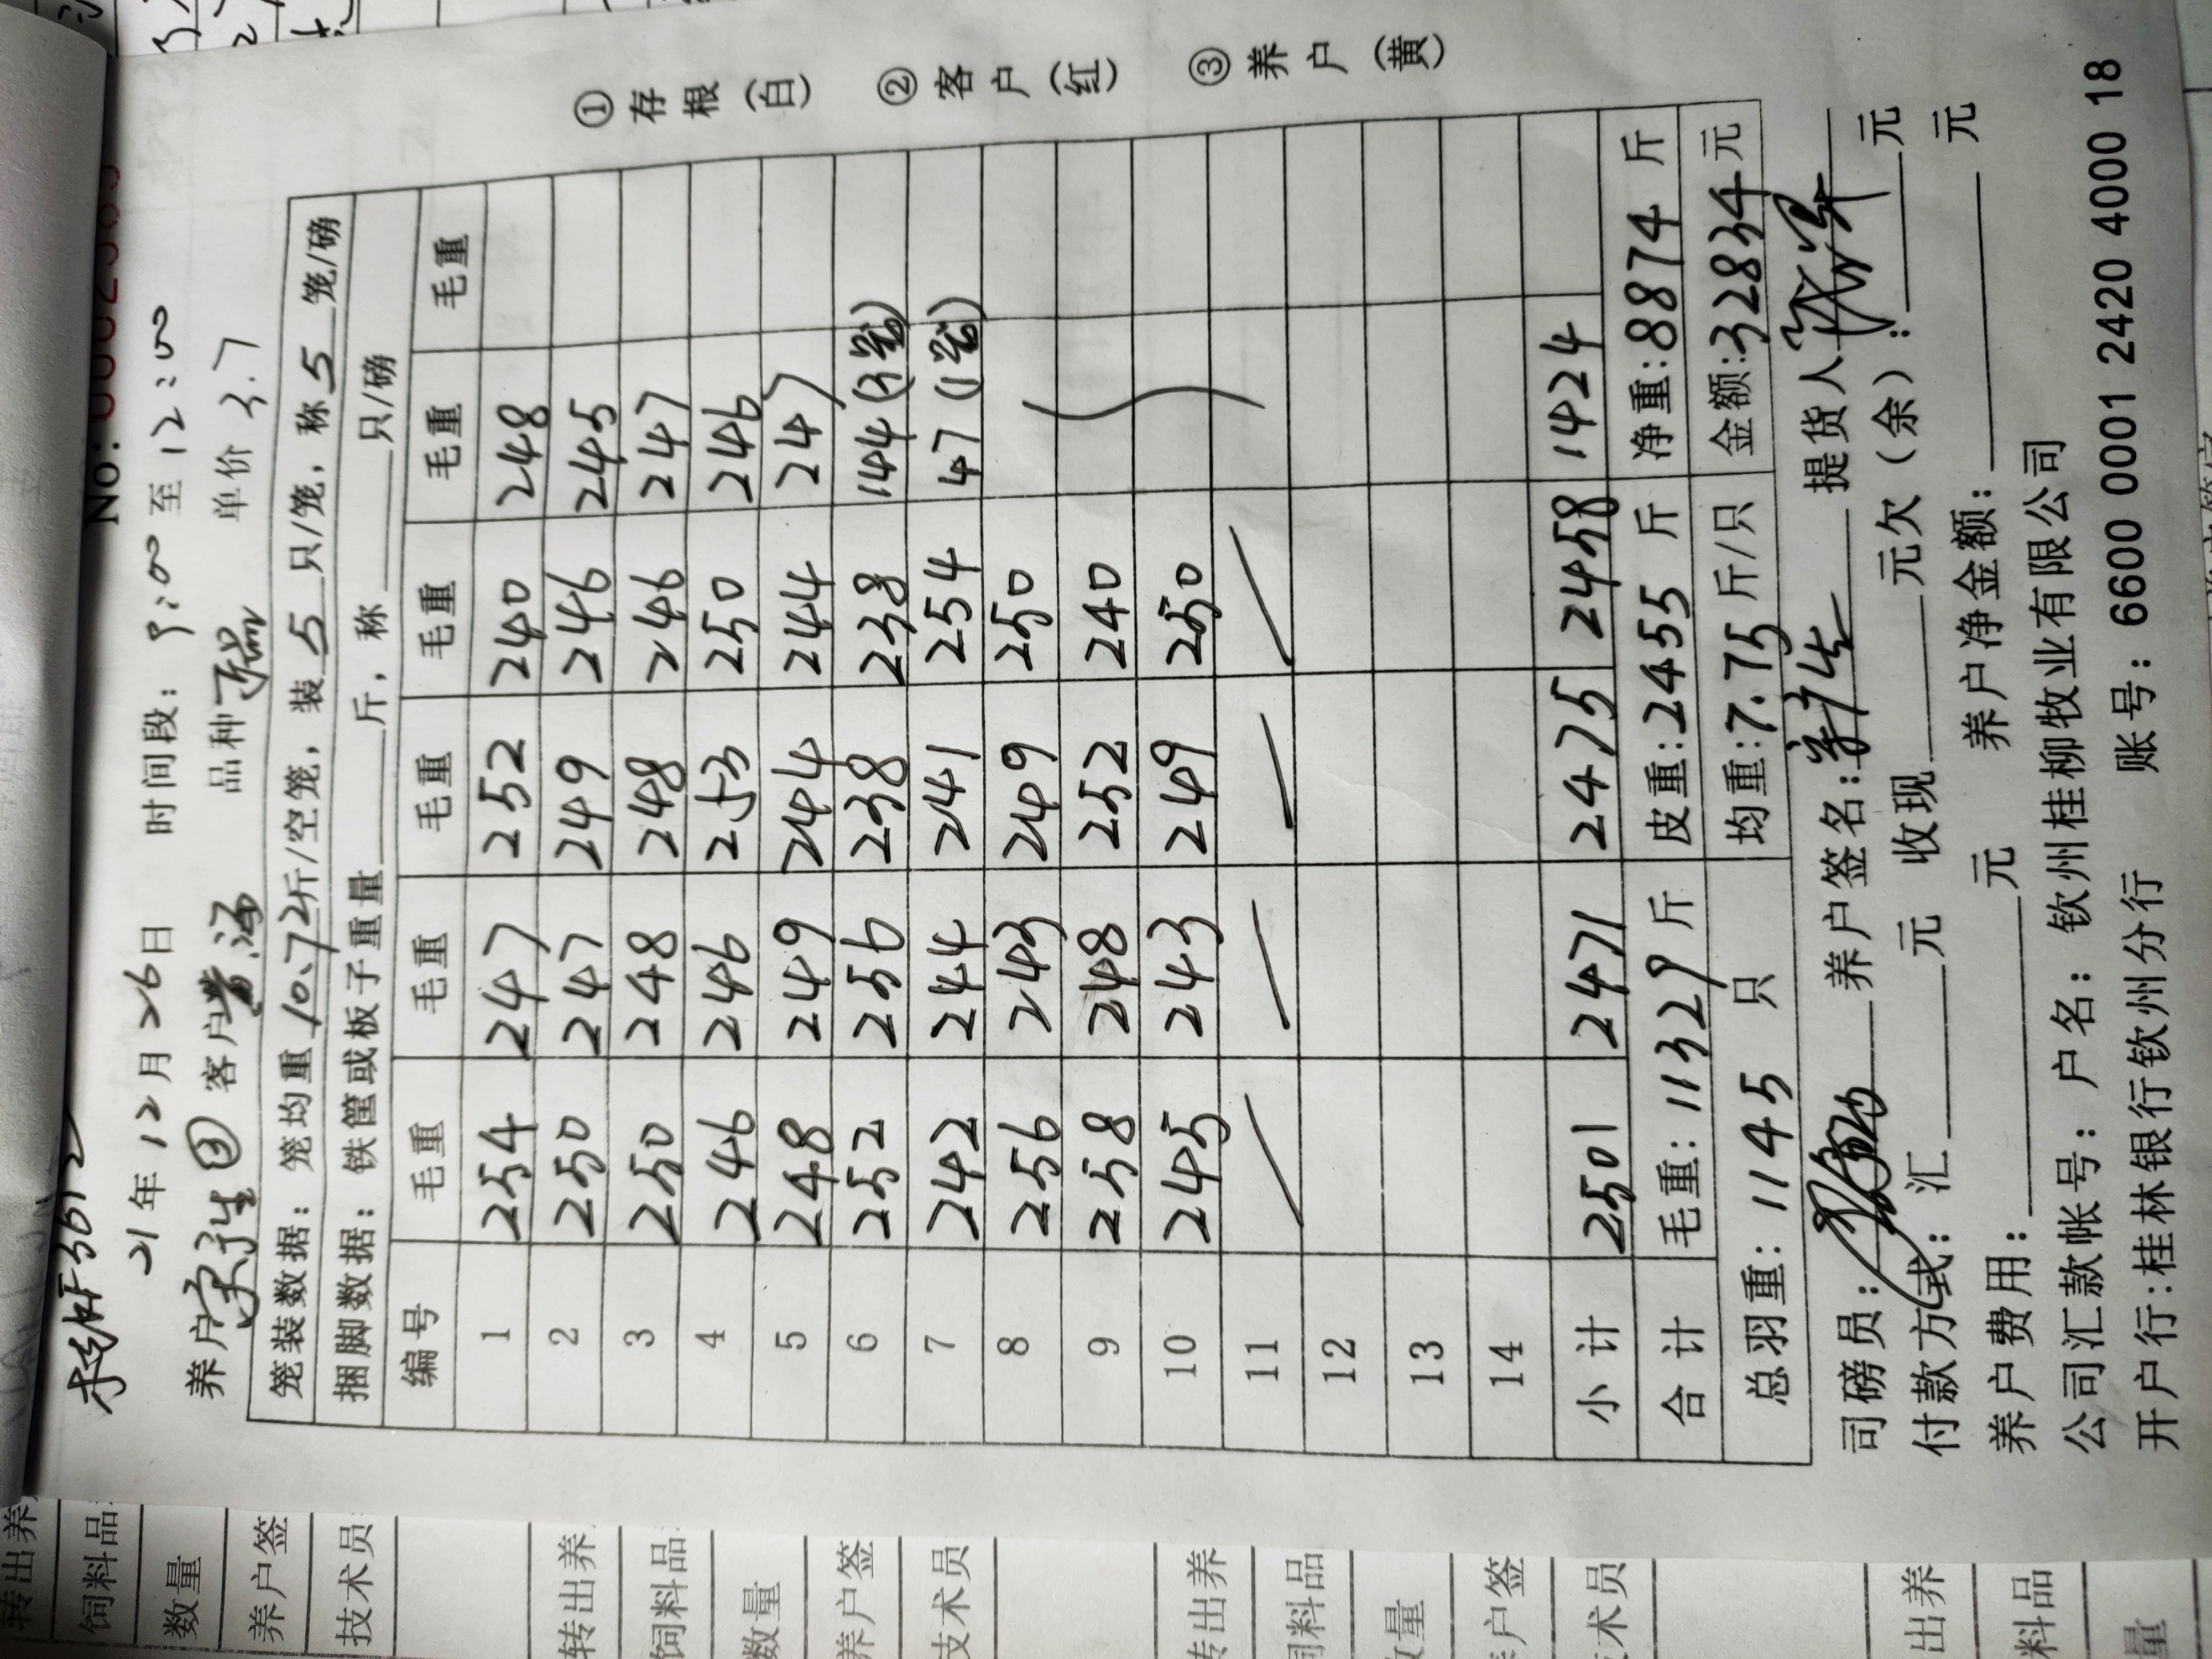 No:
21年12月26日 时间段:9:00至12:00
养户 客户黄 品种 单价3.7
笼装数据:笼均重10.72斤/空笼,装5只/笼,称5笼/磅
捆脚数据:铁筐或板子重量 斤,称 只/磅
编号 毛重 毛重 毛重 毛重 毛重 毛重
1 254 247 252 240 248
2 250 247 249 246 245
3 250 248 248 246 247
4 246 246 253 250 246
5 248 249 244 244 247
6 252 256 238 238 144(3笼)
7 242 244 241 254 47(1笼)
8 256 243 249 250
9 258 248 252 240
10 245 243 249 250
11
12
13
14
小计 2501 2471 2475 2458 1424
合计 毛重:11329斤 皮重:2455斤 净重:8874斤
总羽重:1145只 均重:7.75斤/只 金额:32834元
司磅员: 养户签名: 提货人
付款方式:汇 元 收现 元欠(余): 元
养户费用: 元 养户净金额: 元
公司汇款帐号:户名:钦州桂柳牧业有限公司
开户行:桂林银行钦州分行 账号:6600 0001 2420 4000 18
①存根(白) ②客户(红) ③养户(黄)
转出养
饲料品
数量
养户签
技术员
转出养
饲料品
数量
养户签
技术员
转出养
饲料品
数量
户签
技术员
出养
料品
量